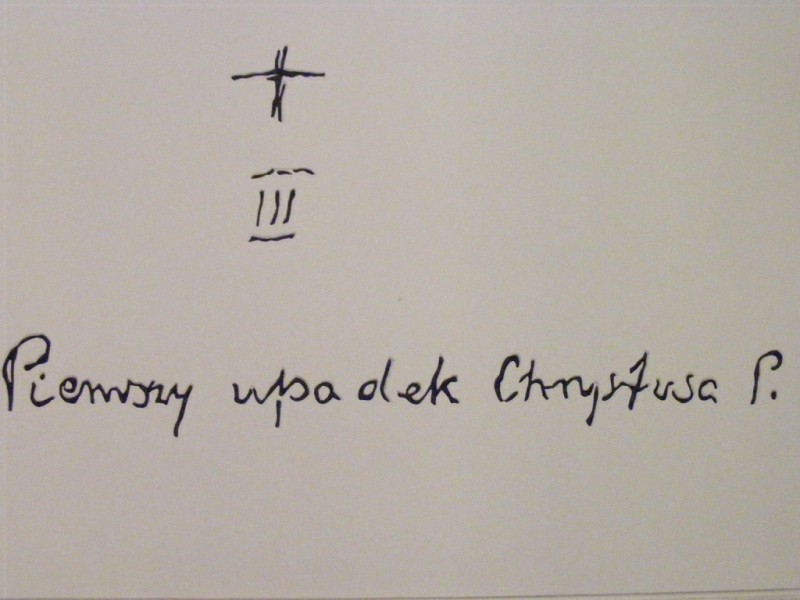 III
Pierwszy upadek Chrystusa P.